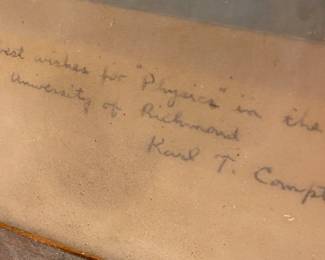 best wishes for "Physics" in the
University of Richmond
Karl T. Compt